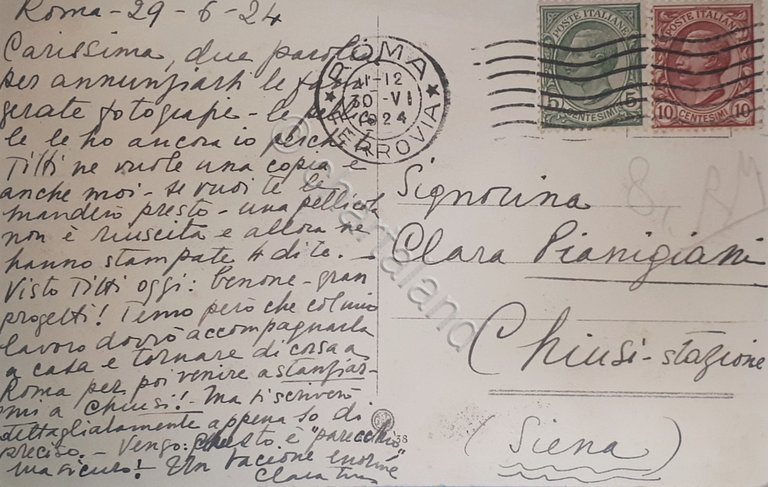 Roma - 29 - 6 - 24
Carissima, due parole
per annunziarti le
gerate fotografie - le
le ho ancora io perché
Titti ne vuole una copia e
anche moi - se vuoi te le
manderò presto - una pellicola
non è riuscita e allora ne
hanno stampate 4 di te. -
Visto Titti oggi: benone - gran
progetti! Temo però che col mio
lavoro dovrò accompagnarla
a casa e tornare di corsa a
Roma per poi venire a stanziar-
mi a Chiusi! - Ma ti scriverò
dettagliatamente appena so di
preciso. - Vengo: questo è "parecchio"
ma sicuro! Un bacione enorme
Clara
ROMA
11-12
30 - VI
1924
FERROVIA
POSTE ITALIANE
5 5
CENTESIMI
POSTE ITALIANE
10 10
CENTESIMI
Signorina
Clara Pianigiani
Chiusi - stazione
(Siena)
38
© chartaland